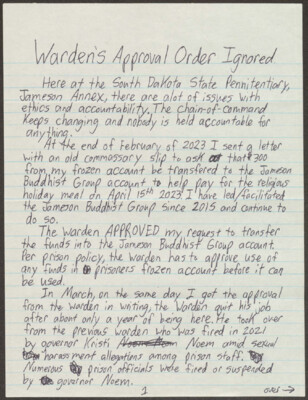 Warden's Approval Order Ignored
Here at the South Dakota State Pennitentiary,
Jameson Annex, there are alot of issues with
ethics and accountability. The chain-of-command
keeps changing and nobody is held accountable for
anything.
At the end of February of 2023 I sent a letter
with an old commossary slip to ask that $300
from my frozen account be transfered to the Jameson
Buddhist Group account to help pay for the religious
holiday meal on April 15th 2023. I have led/facilitated
the Jameson Buddhist Group since 2015 and continue to
do so.
The Warden APPROVED my request to transfer
the funds into the Jameson Buddhist Group account.
Per prison policy, the warden has to approve use of
any funds in prisoners frozen account before it can
be used.
In March, on the same day I got the approval
from the warden in writing, the Warden quit his job
after about only a year of being here. He took over
from the previous warden who was fired in 2021
by governor Kristi Noem amid sexual
harassment allegations among prison staff.
Numerous prison officials were fired or suspended
by governor Noem.
1
over →